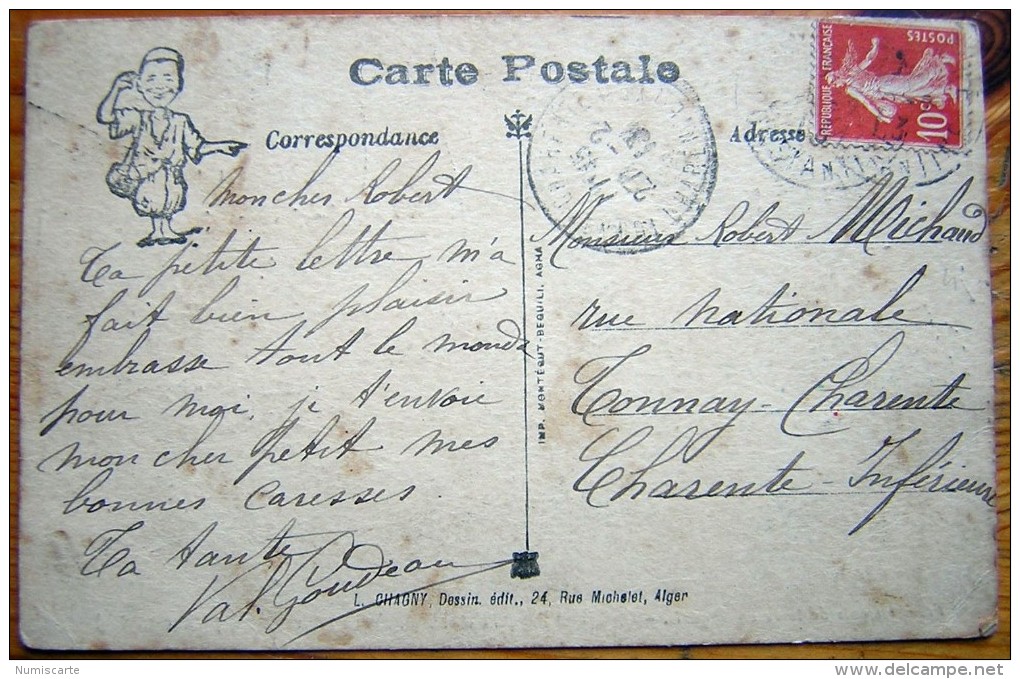 Carte Postale
Correspondance
Adresse
REPUBLIQUE FRANÇAISE
POSTES
10c
mon cher Robert
Ta petite lettre m'a
fait bien plaisir
embrasse tout le monde
pour moi, je t'envoie
mon cher petit mes
bonnes caresses.
Ta tante
Val. Goudeau
IMP. MONTÉGUT-BEGUILI, AGHA
Monsieur Robert Michaud
rue nationale
Tonnay-Charente
Charente-Inférieure
L. CHAGNY, Dessin. édit., 24, Rue Michelet, Alger
Numiscarte
delcampe.net